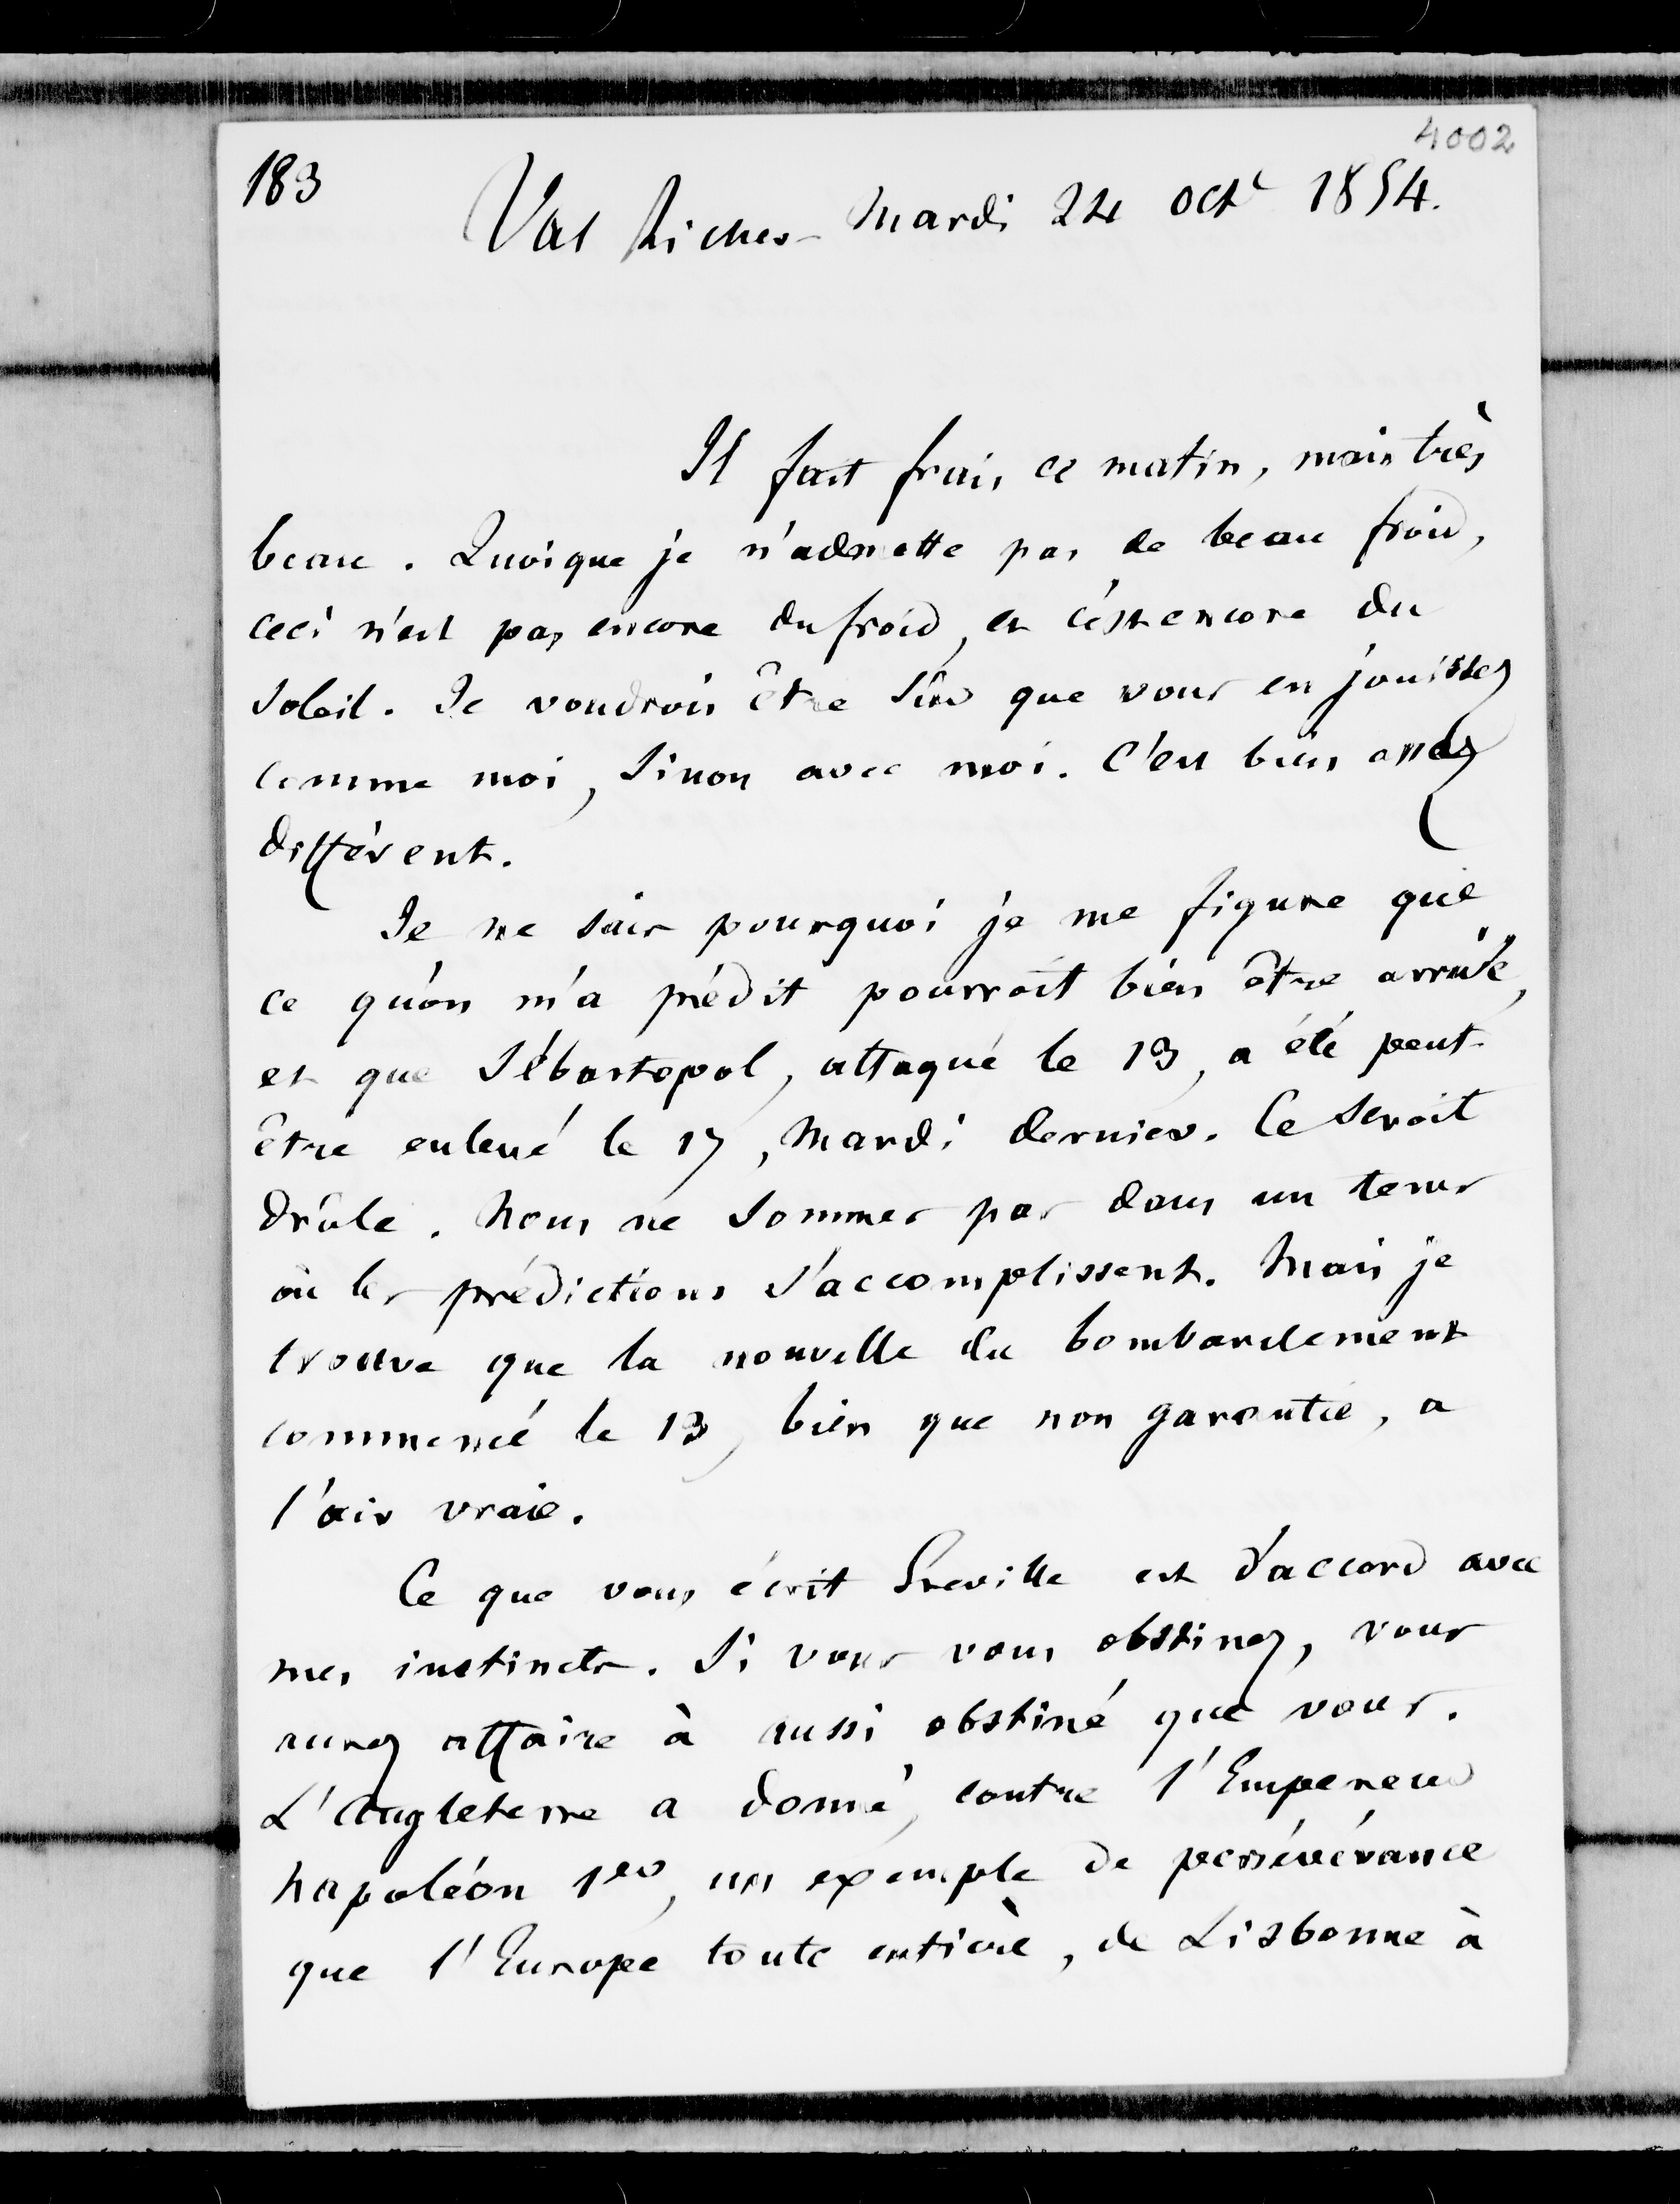 4002
183
Val Richer - Mardi 24 Oct 1854.
Il fait frais ce matin, mais très
beau. Quoique je n'admette pas de beau froid,
ceci n'est pas encore du froid, et c'est encore du
soleil. Je voudrois être sûr que vous en jouissez
comme moi, sinon avec moi. C'est bien assez
différent.
Je ne sais pourquoi je me figure que
ce qu'on m'a prédit pourroit bien être arrivé,
et que Sébastopol, attaqué le 13, a été peut-
être enlevé le 17, Mardi dernier. Ce seroit
drôle. Nous ne sommes pas dans un tems
où les prédictions s'accomplissent. Mais je
trouve que la nouvelle du bombardement
commencé le 13, bien que non garantie, a
l'air vraie.
Ce que vous écrit Greville est d'accord avec
mes instincts. Si vous vous obstinez, vous
aurez affaire à aussi obstiné que vous.
L'Angleterre a donné, contre l'Empereur
Napoléon 1er, un exemple de persévérance
que l'Europe toute entière, de Lisbonne à